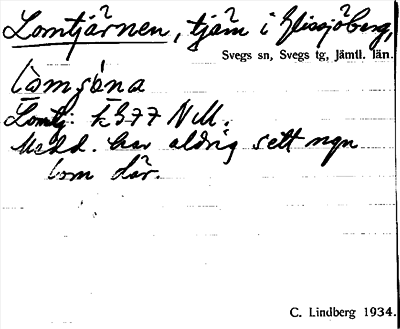 Lomtjärnen, tjärn i Glissjöberg,
Svegs sn, Svegs tg, Jämtl. län.
Lomtj: k 377 NM.
Medd. har aldrig sett ngn
lom där.
C. Lindberg 1934.